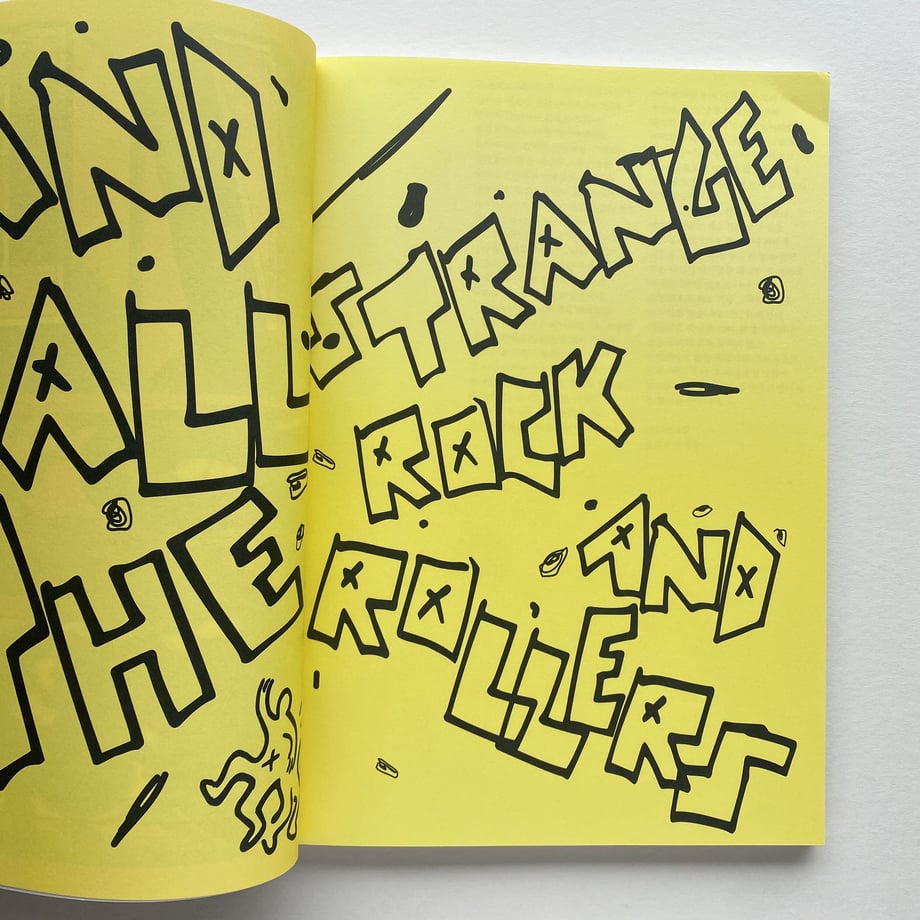 AND
ALL
THE
STRANGE
ROCK
AND
ROLLERS